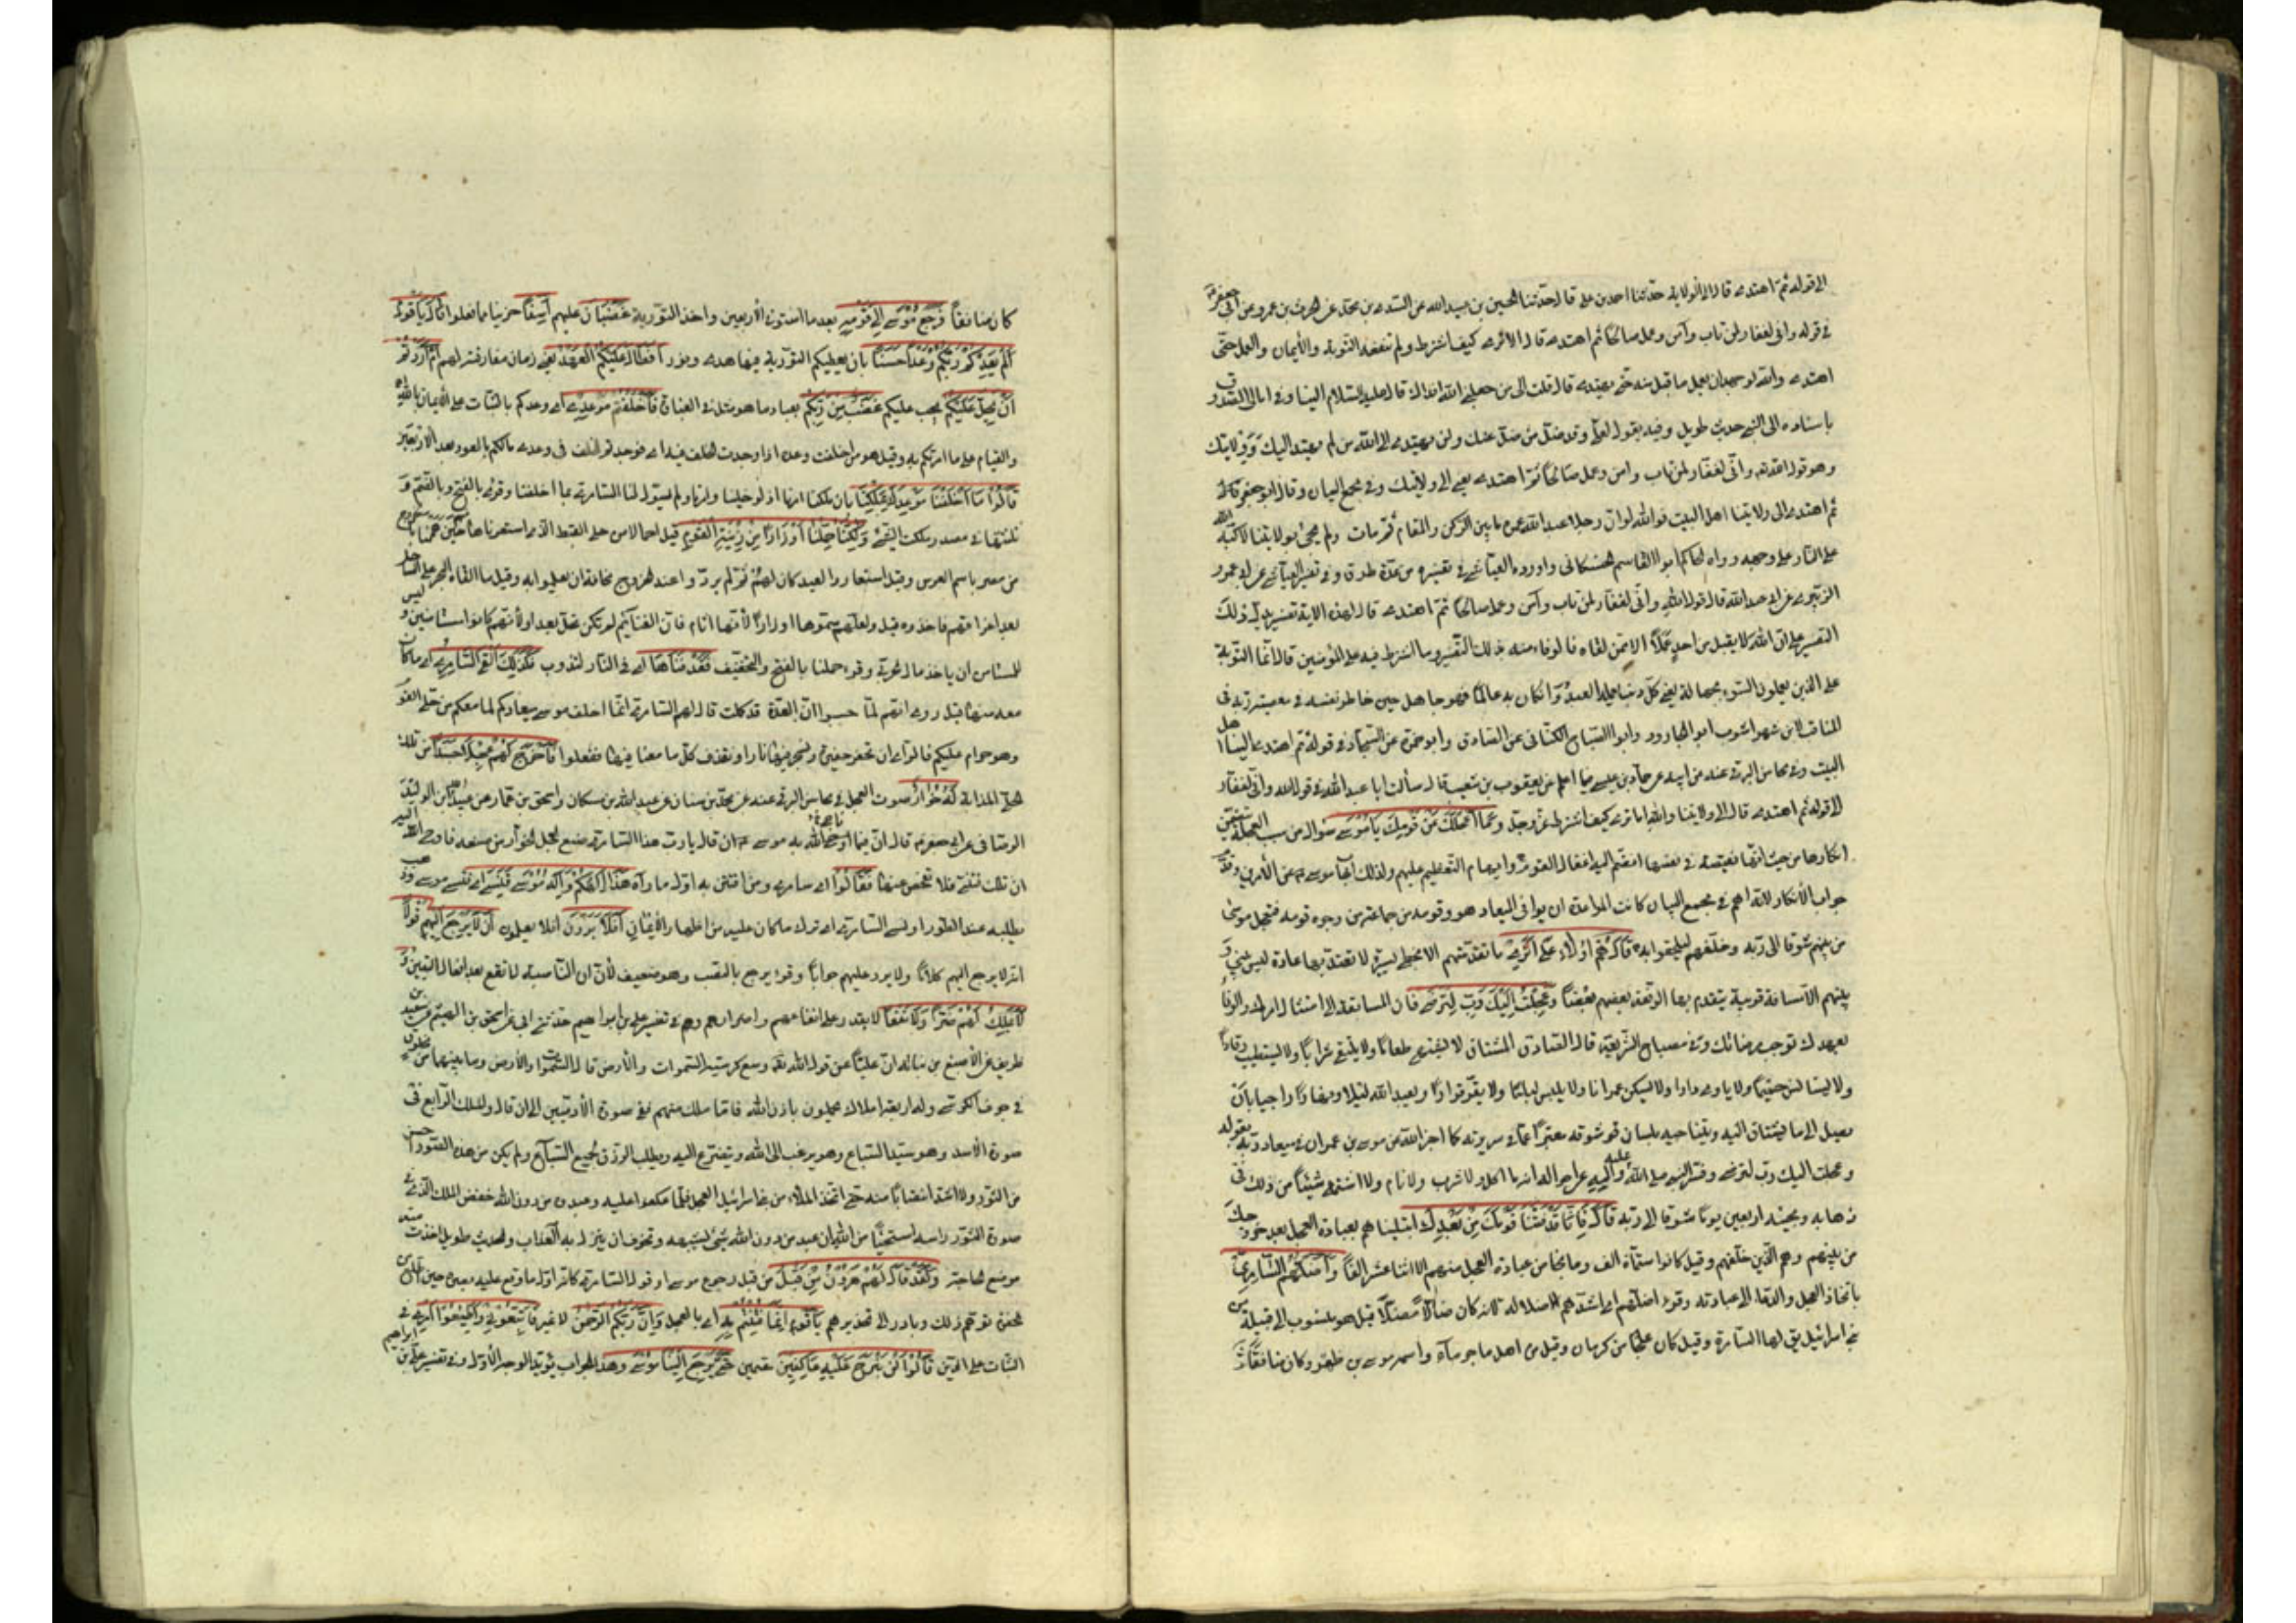 الى قوله ثم اهتدى قال الى الولاية حدثنا احمد بن علي قال حدثنا الحسين بن عبيد الله عن السندي بن محمد عن ابان عن الحرث بن عمرو عن ابي جعفر
في قوله واني لغفار لمن تاب وآمن وعمل صالحا ثم اهتدى قال الا ترى كيف اشترط ولم تنفعه التوبة والأيمان والعمل حتى
اهتدى والله لو جهد ان يعمل ما قبل منه حتى يهتدى قال قلت الى من جعلني الله فداك قال عليه السلام الينا وفي امالي الصدوق
باسناده الى النبي حديث طويل وفيه يقول لعلي وقد ضل من ضل عنك ولن يهتدى الى الله من لم يهتد اليك والى ولايتك
وهو قول الله واني لغفار لمن تاب وامن وعمل صالحًا ثم اهتدى يعني الى ولايتك وفي مجمع البيان وقال ابو جعفر قال
ثم اهتدى الى ولايتنا اهل البيت فوالله لو ان رجلا عبد الله عمره ما بين الركن والمقام ثم مات ولم يجئ بولايتنا لاكبه الله
على النار على وجهه ورواه الحاكم ابو القاسم الحسكاني واورده العياشي في تفسيره من عدة طرق وفي تفسير العياشي عن ابي عمرو
الزبيرى عن ابي عبد الله قال قول الله واني لغفار لمن تاب وآمن وعمل صالحًا ثم اهتدى قال لهذه الاية تفسير يدل ذلك
التفسير على ان الله لا يقبل من احد عملًا الا ممن لقاه فالوفاء منه بذلك التفسير وما اشترط فيه على المؤمنين قال انما التوبة
على الذين يعملون السوء بجهالة يعني كل ذنب عمله العبد وان كان به عالمًا فهو جاهل حين خاطر بنفسه في معصيته ربه وفي
المناقب لابن شهراشوب ابو الجارود وابو الصباح الكناني عن الصادق وابو حمزة عن السجاد في قوله ثم اهتدى الينا اهل
البيت وفي محاسن البرقي عنه عن ابيه عن حماد بن عيسى فيما اعلم عن يعقوب بن شعيب قال سألت ابا عبد الله في قول الله واني لغفار
الى قوله ثم اهتدى قال الى ولايتنا والله اما ترى كيف اشترط عز وجل وما اعجلك عن قومك يا موسى سؤال عن سبب العجلة يتضمن
انكارها من حيث انها نقيصة في نفسها انضم اليها اغفال القوم وايهام التعظيم عليهم ولذلك اجاب موسى عن الأمرين وقدم
جواب الأنكار لانه اهم في مجمع البيان كانت المواعدة ان يوافى الميعاد هو وقومه من جماعة من وجوه قومه فتعجل موسى
من بينهم شوقا الى ربه وخلفهم ليلحقوا به قال هم اولاء على اثري ما تقدمتهم الا بخطى يسيرة لا تعتد بها عادة ليس بيني و
بينهم الا مسافة قريبة يتقدم بها الرفقة بعضهم بعضا وعجلت اليك رب لترضى فان المسابقة الى امتثال امرك والوفا
بعهدك توجب مرضاتك وفي مصباح الشريعة قال الصادق المشتاق لا يشتهي طعامًا ولا يلتذ شرابًا ولا يستطيب رقادًا
ولا يستأنس حميمًا ولا ياوى دارا ولا يسكن عمرانا ولا يلبس لباسًا ولا يقر قرارًا ويعبد الله ليلا ونهارًا راجيا بان
يصل الى ما يشتاق اليه ويناجيه بلسان شوقه معبرًا عما في سريرته كما اخبر الله عن موسى بن عمران في ميعاد ربه بقوله
وعجلت اليك رب لترضى وفسر النبي صلى الله عليه وآله عن حاله انه ما اكل ولا شرب ولا نام ولا اشتهى شيئًا من ذلك في
ذهابه ومجيئه اربعين يومًا شوقا الى ربه قال فانا قد فتنا قومك من بعدك ابتليناهم بعبادة العجل بعد خروجك
من بينهم وهم الذين خلفهم وقيل كانوا ستمائة الف وما نجا من عبادة العجل منهم الا اثنا عشر الفًا واضلهم السامري
باتخاذ العجل والدعاء الى عبادته وقرئ اضلهم اى اشدهم ضلالة لانه كان ضالًا مضلًا قيل هو منسوب الى قبيلة من
بني اسرائيل يق لها السامرة وقيل كان علجًا من كرمان وقيل من اهل ماجرماء واسمه موسى بن ظفر وكان منافقًا
كان منافقًا فرجع موسى الى قومه بعد ما استوفى الأربعين واخذ التورية غضبان عليهم اسفًا حزينا بما فعلوا قال يا قوم
الم يعدكم ربكم وعدًا حسنًا بان يعطيكم التورية فيها هدى ونور افطال عليكم العهد يعني زمان مفارقته لهم ام اردتم
ان يحل عليكم يجب عليكم غضب من ربكم بعبادة ما هو مثل في الغباوة فاخلفتم موعدي اى وعدكم بالثبات على الأيمان بالله
والقيام على ما امرتكم به وقيل هو من اخلفت وعده اذا وجدت الخلف فيه اى فوجدتم الخلف في وعدى لكم بالعود بعد الاربعين
قالوا ما اخلفنا موعدك بملكنا بان ملكنا امرنا اذ لو خلينا وامرنا ولم يسول لنا السامري لما اخلفنا وقرئ بالفتح وبالضم و
ثلثتها في مصدر ملكت الشئ ولكنا حملنا اوزارًا من زينة القوم قيل احمالا من حلي القبط الذي استعرناها حين هممنا بالخروج
من مصر باسم العرس وقيل استعاروا لعيد كان لهم ثم لم يردوا عند الخروج مخافة ان يعلموا به وقيل ما القاه البحر على الساحل
بعد اغراقهم فاخذوه قيل ولعلهم سموها اوزارًا لأنها اثام فان الغنايم لم تكن تحل بعد او لأنهم كانوا مستأمنين وليس
للمستأمن ان ياخذ مال الحربي وقرئ حملنا بالفتح والتخفيف فقذفناها اى في النار لتذوب فكذلك القى السامري اى ما كان
معه منها قيل روى انهم لما حسبوا ان العدة قد كملت قال لهم السامري انما اخلف موسى ميعادكم لما معكم من حلي القوم
وهو حرام عليكم فالرأى ان نحفر حفيرة ونسجر فيها نارا ونقذف كل ما معنا فيها ففعلوا فاخرج لهم عجلًا جسدًا من تلك
الحلي المذابة له خوار صوت العجل في محاسن البرقي عنه عن محمد بن سنان عن عبد الله بن مسكان واسحق بن عمار عن عبيد الله بن الوليد
الوصافى عن ابي جعفر قال ان فيما ناجى الله به موسى ان قال يا رب هذا السامري صنع العجل الخوار من صنعه فاوحى الله اليه
ان تلك فتنتي فلا تفحص عنها فقالوا اى سامري ومن افتتن به اول ما رآه هذا الهكم واله موسى فنسي اى نسي موسى وذهب
يطلبه عند الطور او نسي السامري اى ترك ما كان عليه من اظهار الأيمان افلا يرون افلا يعلمون ان لا يرجع اليهم قولًا
انه لا يرجع اليهم كلامًا ولا يرد عليهم جوابًا وقرئ يرجع بالنصب وهو ضعيف لأن ان الناصبة لا تقع بعد افعال اليقين و
لا يملك لهم ضرًا ولا نفعًا لا يقدر على انفاعهم واضرارهم وفي تفسير علي بن ابراهيم حدثني ابي عن اسحق بن الهيثم عن سعد بن
طريف عن الأصبغ بن نباتة ان عليًا عن قول الله وسع كرسيه السموات والأرض قال السموات والأرض وما بينهما من مخلوق
في جوف الكرسي وله اربعة املاك يحملون باذن الله فاما ملك منهم في صورة الأدميين الى ان قال والملك الرابع في
صورة الأسد وهو سيد السباع وهو يرغب الى الله ويتضرع اليه ويطلب الرزق لجميع السباع ولم يكن من هذه الصور احسن
من الثور ولا اشد انتصابًا منه حتى اتخذ الملاء من بني اسرائيل العجل فلما عكفوا عليه وعبدوه من دون الله خفض الملك الذي في
صورة الثور راسه استحياء من الله ان عبد من دون الله شئ يشبهه وتخوف ان ينزل به العذاب والحديث طويل اخذت منه
موضع الحاجة ولقد قال لهم هرون من قبل من قبل رجوع موسى او قول السامري كانه اول ما وقع عليه بصره حين طلع من
الحفرة توهم ذلك وبادر الى تحذيرهم يا قوم انما فتنتم به اى بالعجل وان ربكم الرحمن لا غير فاتبعوني واطيعوا امري في
الثبات على الدين قالوا لن نبرح عليه عاكفين مقيمين حتى يرجع الينا موسى وهذا الجواب يؤيد الوجه الأول وفي تفسير علي بن ابراهيم